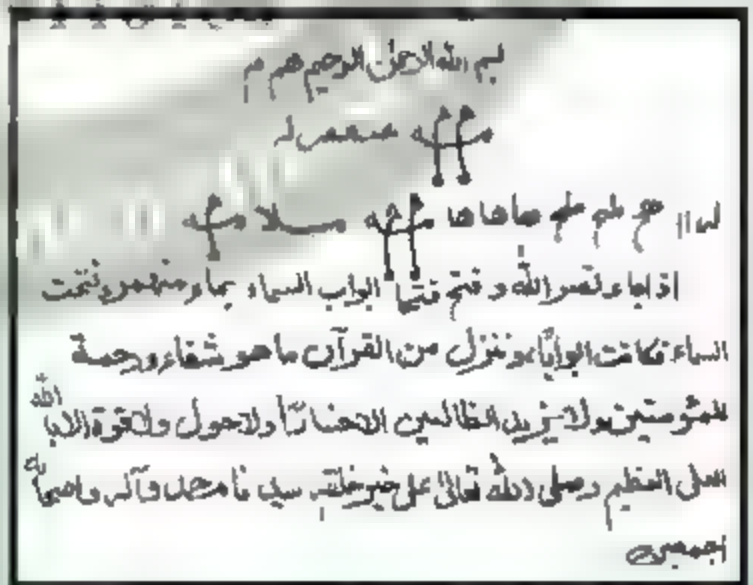 بسم الله الرحمن الرحيم هم م
صعص له
لم اا هع طم طم هاهاها سلا
اذا جاء نصر الله و فتح فتحنا ابواب السماء بماء منهمر وفتحت
السماء فكانت ابوابًا وننزل من القرآن ما هو شفاء ورحمة
للمؤمنين ولا يزيد الظالمين الا خسارًا ولا حول ولا قوة الا بالله
العلى العظيم وصلى الله تعالى على خير خلقه سيدنا محمد وآله واصحابه
اجمعين